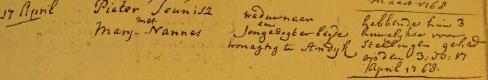 17 April
Pieter Teunisz
met
Mary Nannes
weduwnaar
en
Jongedogter beijde
woonagtig te Andijk
maart 1768
hebbende hun 3
huwelijkse voor
stellingen gehad
op den 3: 10: 17
April 1768.